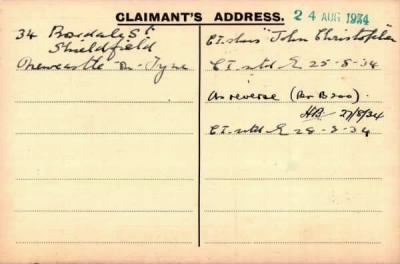 CLAIMANT'S ADDRESS.
24 AUG 1934
34 St
Shieldfield
Newcastle-on-Tyne
C.I. "John Christopher"
C.I. retd E 25-8-34
As reverse (Per B200).
HB. 27/8/34
C.I. retd E 28-8-34